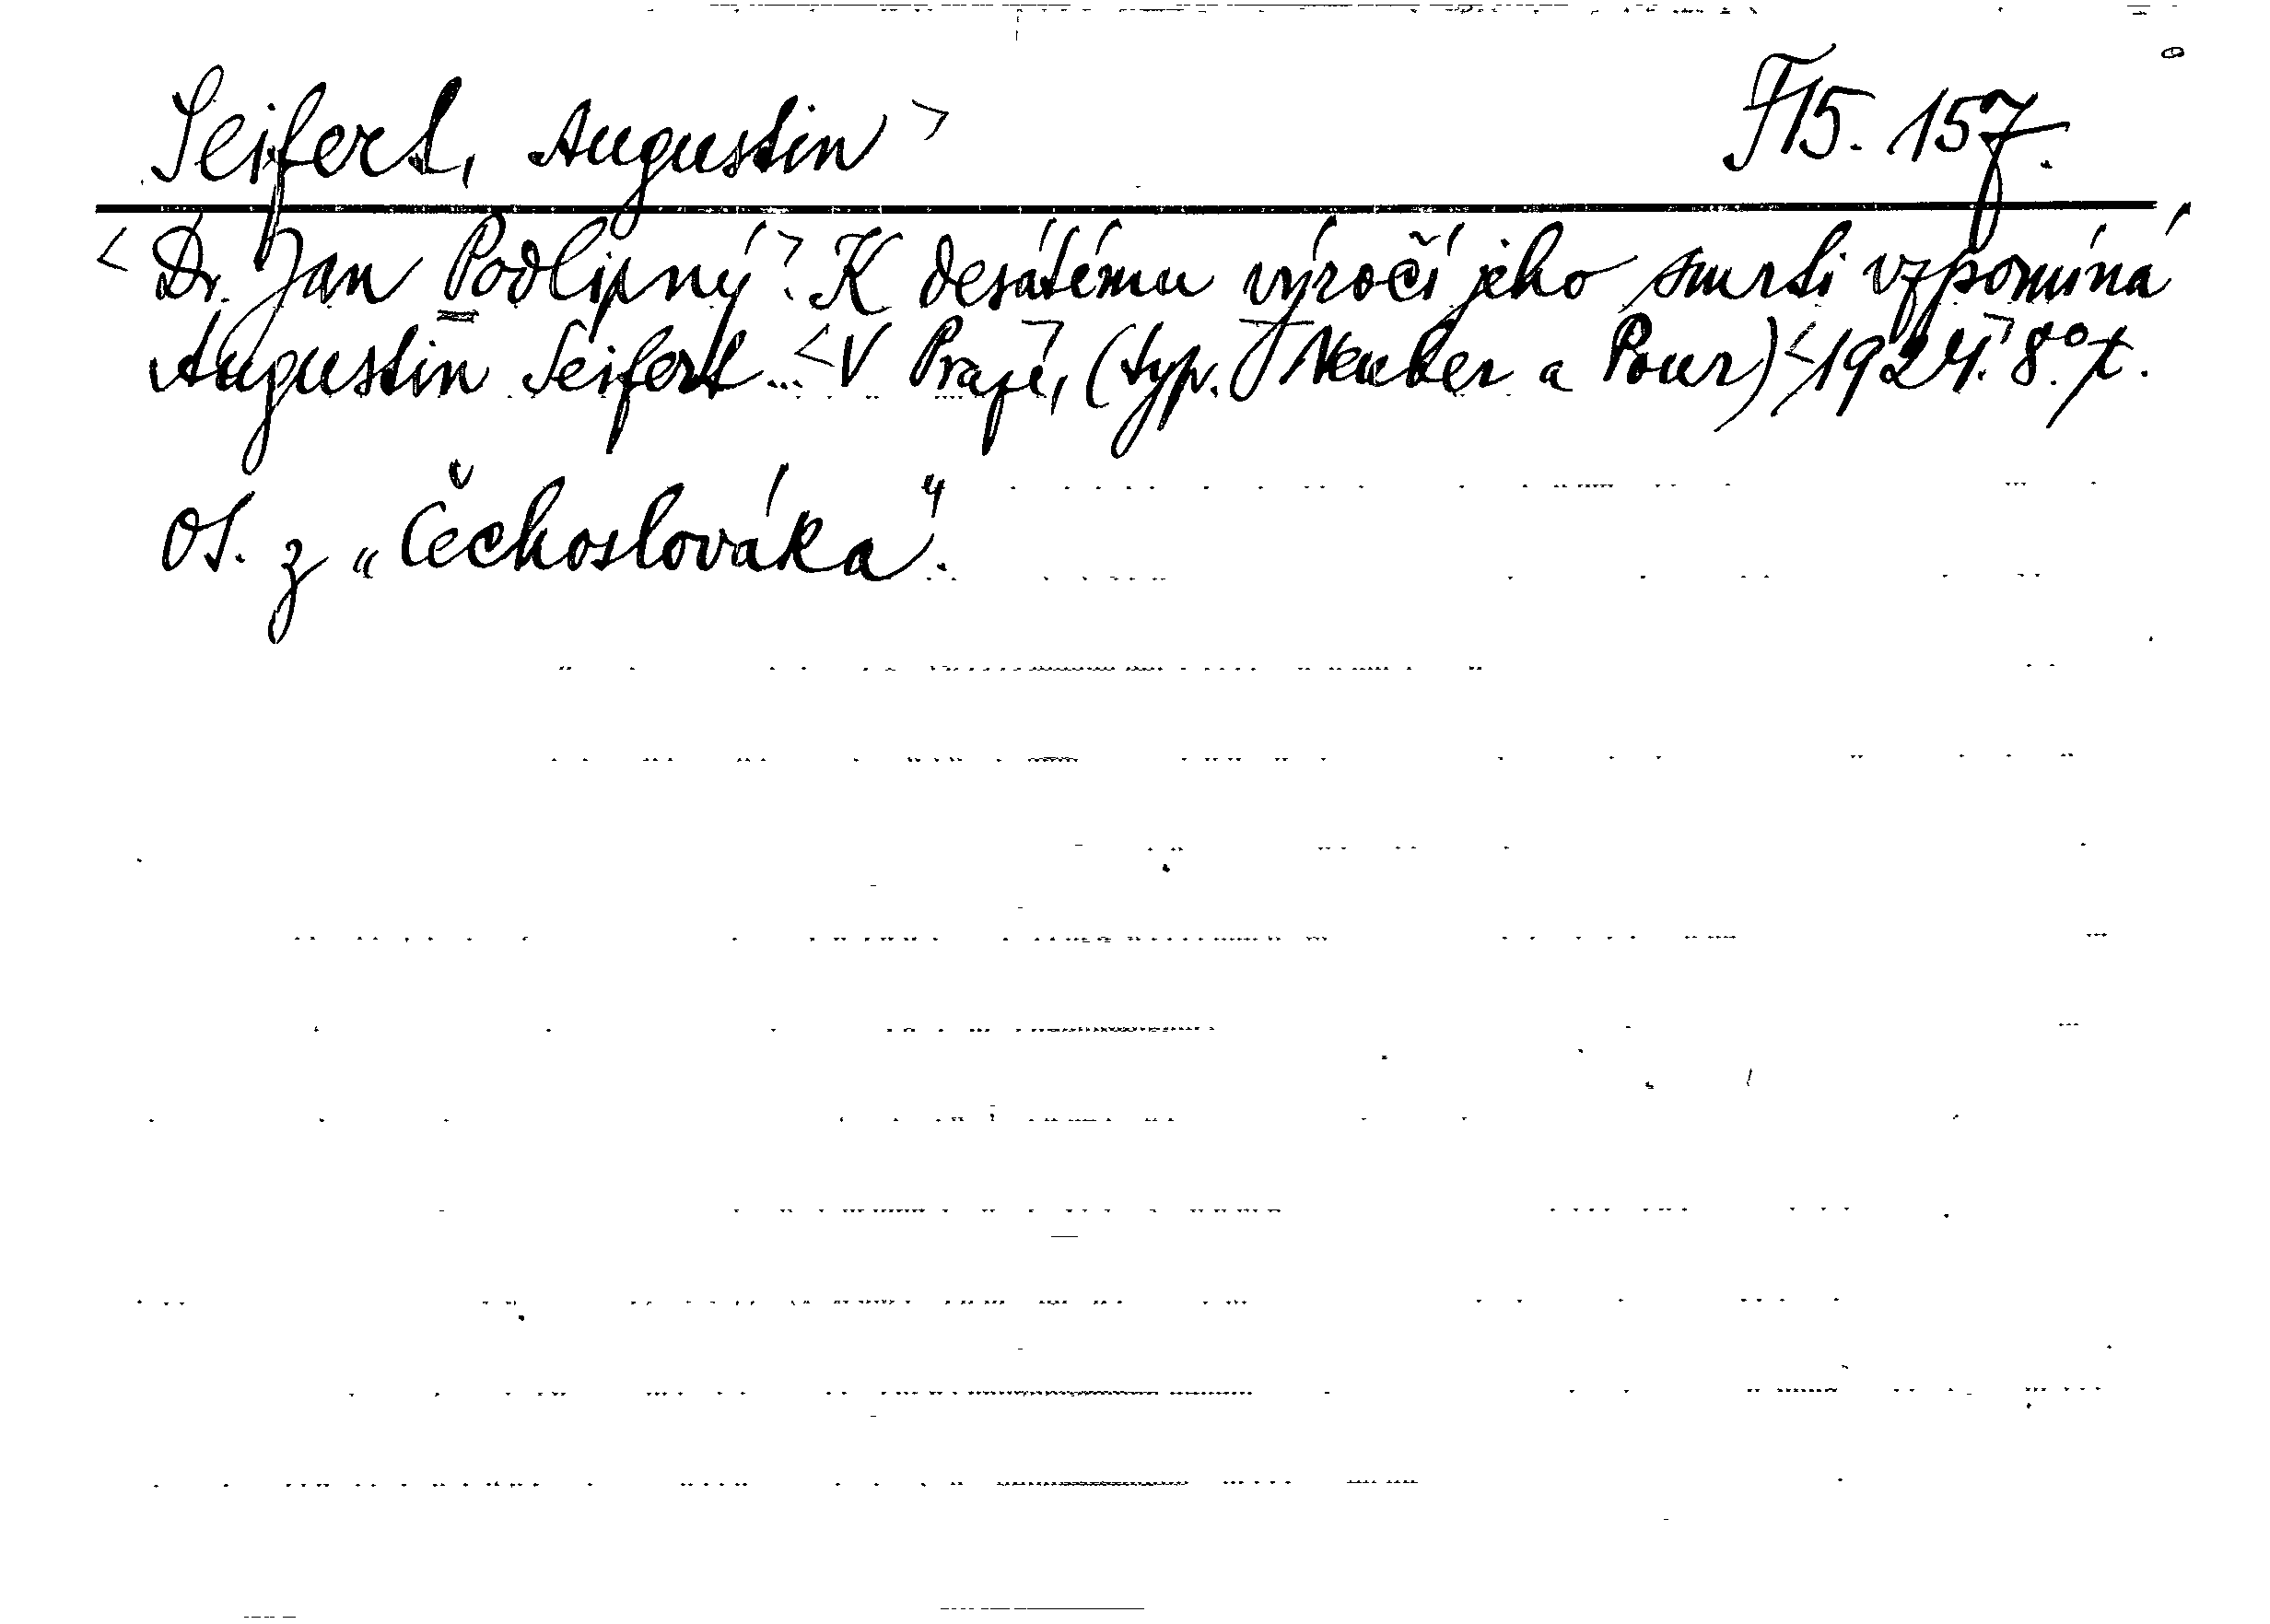 Seifert, Augustin> F15. 157.
<Dr. Jan Podlipný>. K desátému výročí jeho smrti vzpomíná
Augustin Seifert ... <V Praze>, (typ. Neuber a Pour) <1924>. 8°.
Ot. z „Čechoslováka".